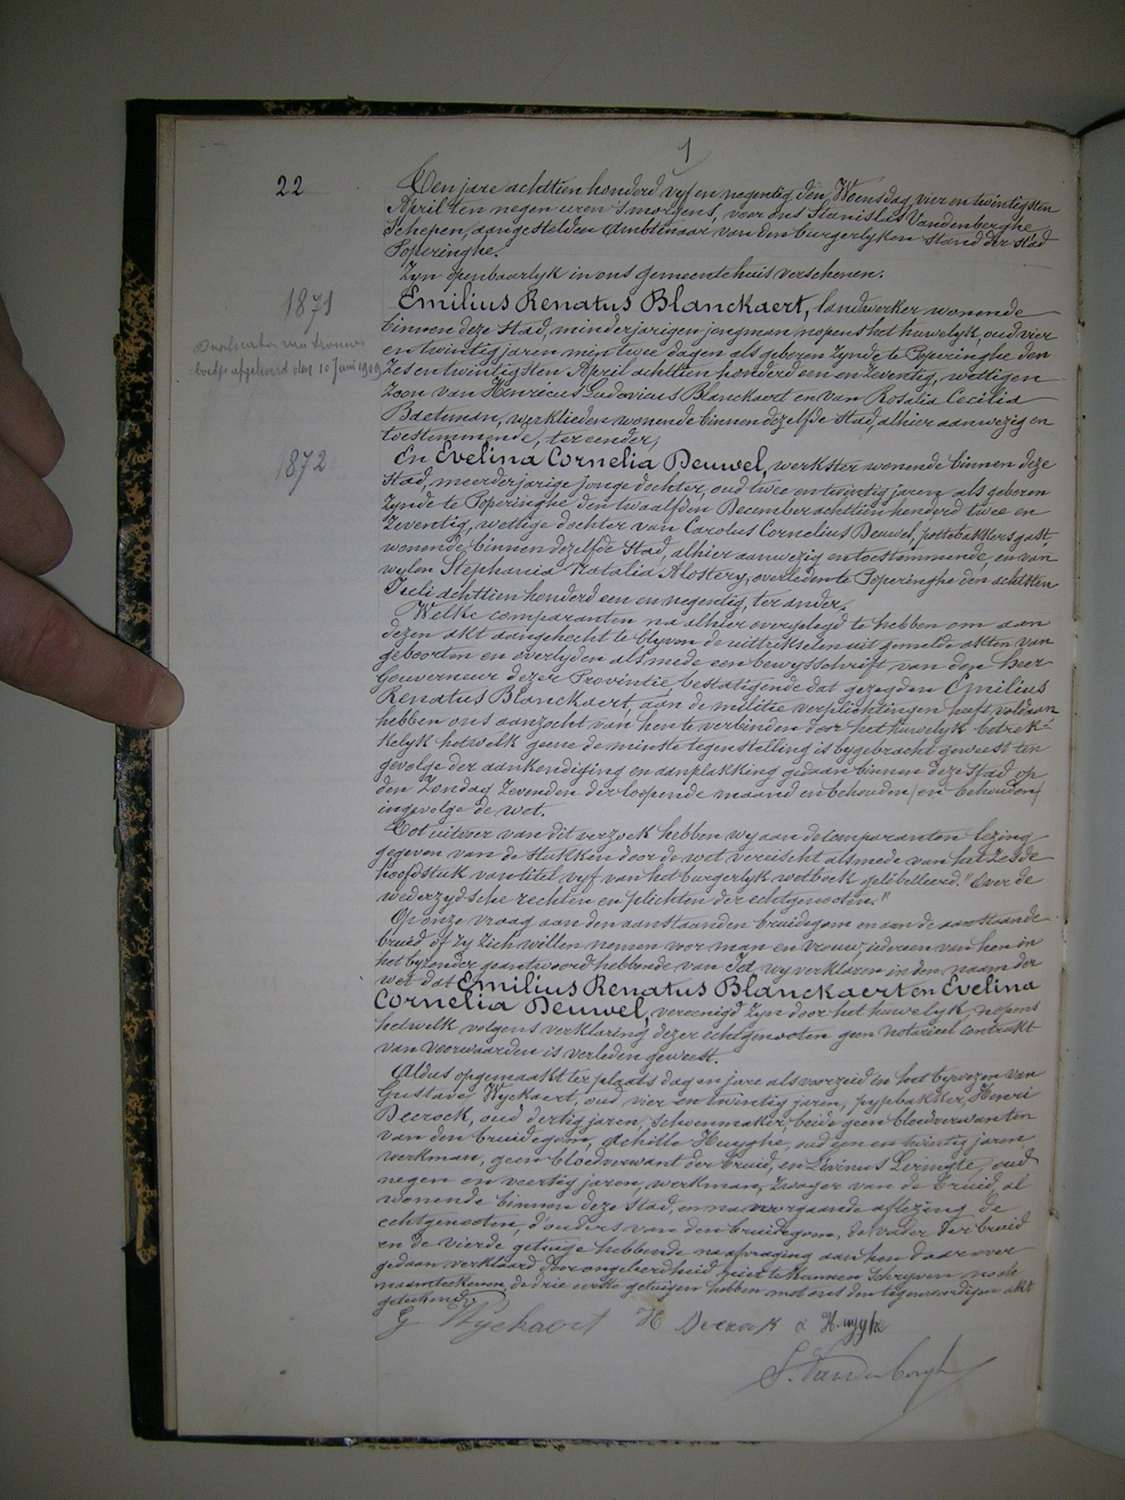 1
22
Den jare achttien honderd vyf en negentig den Woensdag vier en twintigsten
April ten negen uren 's morgens, voor ons Stanislas Vandenberghe
Schepen, aangestelden Ambtenaar van den burgerlyken stand der stad
Poperinghe.
Zyn openbaarlyk in ons gemeentehuis verschenen.
1871
Emilius Renatus Blanckaert, landwerker wonende
binnen deze stad, minderjarigen jongman nopens het huwelyk, oud vier
en twintig jaren min twee dagen als geboren zynde te Poperinghe den
zes en twintigsten April achttien honderd een en zeventig, wettigen
zoon van Henricus Ludovicus Blanckaert en van Rosalia Cecilia
Baetman, werklieden wonende binnen dezelfde stad, alhier aanwezig en
toestemmende, ter eender,
Duplicata van trouw
boekje afgeleverd den 10 Juni 1919
1872
En Evelina Cornelia Deuwel, werkster wonende binnen deze
stad, meerderjarige jonge dochter, oud twee en twintig jaren als geboren
zynde te Poperinghe den twaalfden December achttien honderd twee en
zeventig, wettige dochter van Carolus Cornelius Deuwel, pottebakkersgast,
wonende binnen dezelfde stad, alhier aanwezig en toestemmende, en van
wylen Stephania Natalia Alostery, overleden te Poperinghe den achtsten
Juli achttien honderd een en negentig, ter ander.
Welke comparanten na alhier overgelegd te hebben om aan
dezen akt aangehecht te blyven de uittrekselen uit gemelde akten van
geboorten en overlyden alsmede een bewysschrift van den heer
Gouverneur dezer Provintie, bestatigende dat gezegden Emilius
Renatus Blanckaert, aan de militie verplichtingen heeft voldaan
hebben ons aanzocht van hen te verbinden door het huwelyk betrek=
kelyk hetwelk geene de minste tegenstelling is bygebracht geweest ten
gevolge der aankondiging en aanplakking gedaan binnen deze stad op
den Zondag zevenden der loopende maand en behouden (en behouden)
ingevolge de wet.
Tot uitvoer van dit verzoek hebben wy aan de comparanten lezing
gegeven van de stukken door de wet vereischt alsmede van het zesde
hoofdstuk van titel vyf van het burgerlyk wetboek gelibelleerd. "Over de
wederzydsche rechten en plichten der echtgenooten."
Op onze vraag aan den aanstaanden bruidegom en aan de aanstaande
bruid of zy zich willen nemen voor man en vrouw, iedereen van hen in
het byzonder geantwoord hebbende van Ja, wy verklaren in den naam der
wet dat Emilius Renatus Blanckaert en Evelina
Cornelia Deuwel, vereenigd zyn door het huwelyk, nopens
hetwelk volgens verklaring dezer echtgenooten geen notarieel contrakt
van voorwaarden is verleden geweest.
Aldus opgemaakt ter plaats dag en jare als voorzeid in het bywezen van
Gustave Wyckaert, oud vier en twintig jaren, pypbakker, Henri
Decrock, oud dertig jaren, schoenmaker, beide geen bloedverwanten
van den bruidegom, Achille Huyghe, oud een en twintig jaren,
werkman, geen bloedverwant der bruid, en Livinus Leringte, oud
negen en veertig jaren, werkman, zwager van de bruid, al
wonende binnen deze stad, en na voorgaande aflezing de
echtgenooten, d'ouders van den bruidegom, de vader der bruid
en de vierde getuige hebbende na afvraging aan hen daarover
gedaan verklaard door ongeleerdheid niet te kunnen schryven noch
naamteekenen, de drie eerste getuigen hebben met ons den tegenwoordigen akt
geteekend.
G Wyckaert H Decrock A Huyghe
S. Vandenberghe